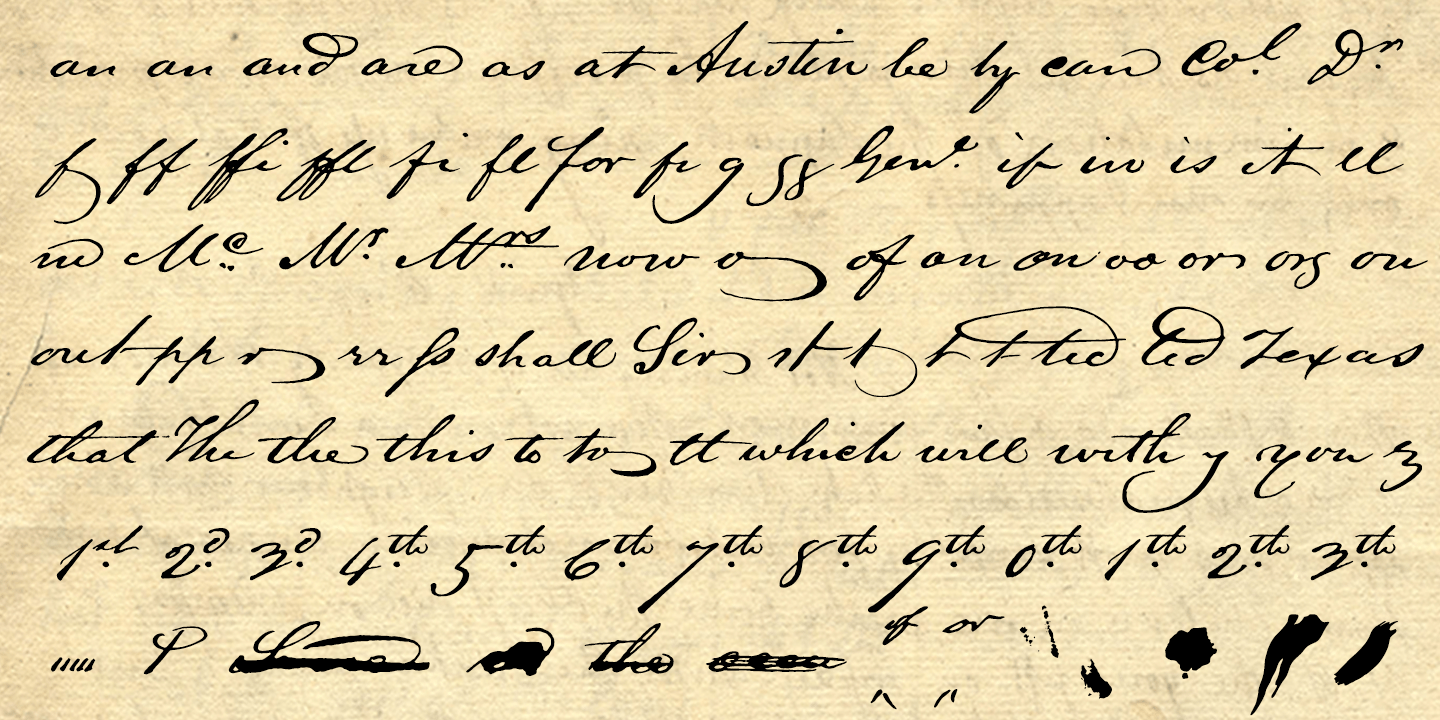 an an and are as at Austin be by can Co.l D.r
f ff ffi ffl fi fl for fr g gg Gen.l if in is it ll
m M.c M.r M.rs now o of on on oo or org ou
out pp r rr ss shall Sir st t t t ted ted Texas
that The the this to to tt which will with y you z
1.st 2.d 3.d 4.th 5.th 6.th 7.th 8.th 9.th 0.th 1.th 2.th 3.th
of or
the